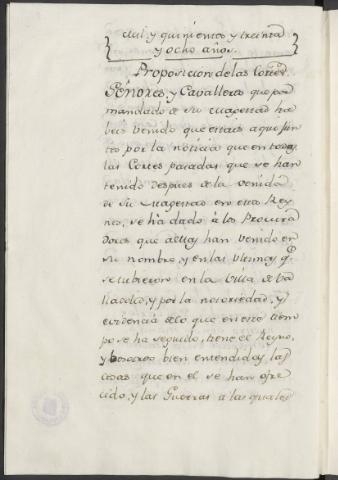 mil y quinientos y treinta
y ocho años.
Proposicion de las Cortes
Señores, y Cavalleros que por
mandado de su Magestad ha
beis venido que estais aqui jun
tos por la noticia que en todas
las Cortes pasadas que se han
tenido despues de la venida
de su Magestad en estos Rey
nos, se ha dado à los Procura
dores que aellas han venido en
su nombre, y en las ultimas q̃
se tubieron en la Villa de Va
lladolid, y por la notoriedad, y
evidencia delo que en este tiem
po se ha seguido, tiene el Reyno,
y vosotros bien entendidas las
cosas que en el se han ofre
cido, y las Guerras a las quales